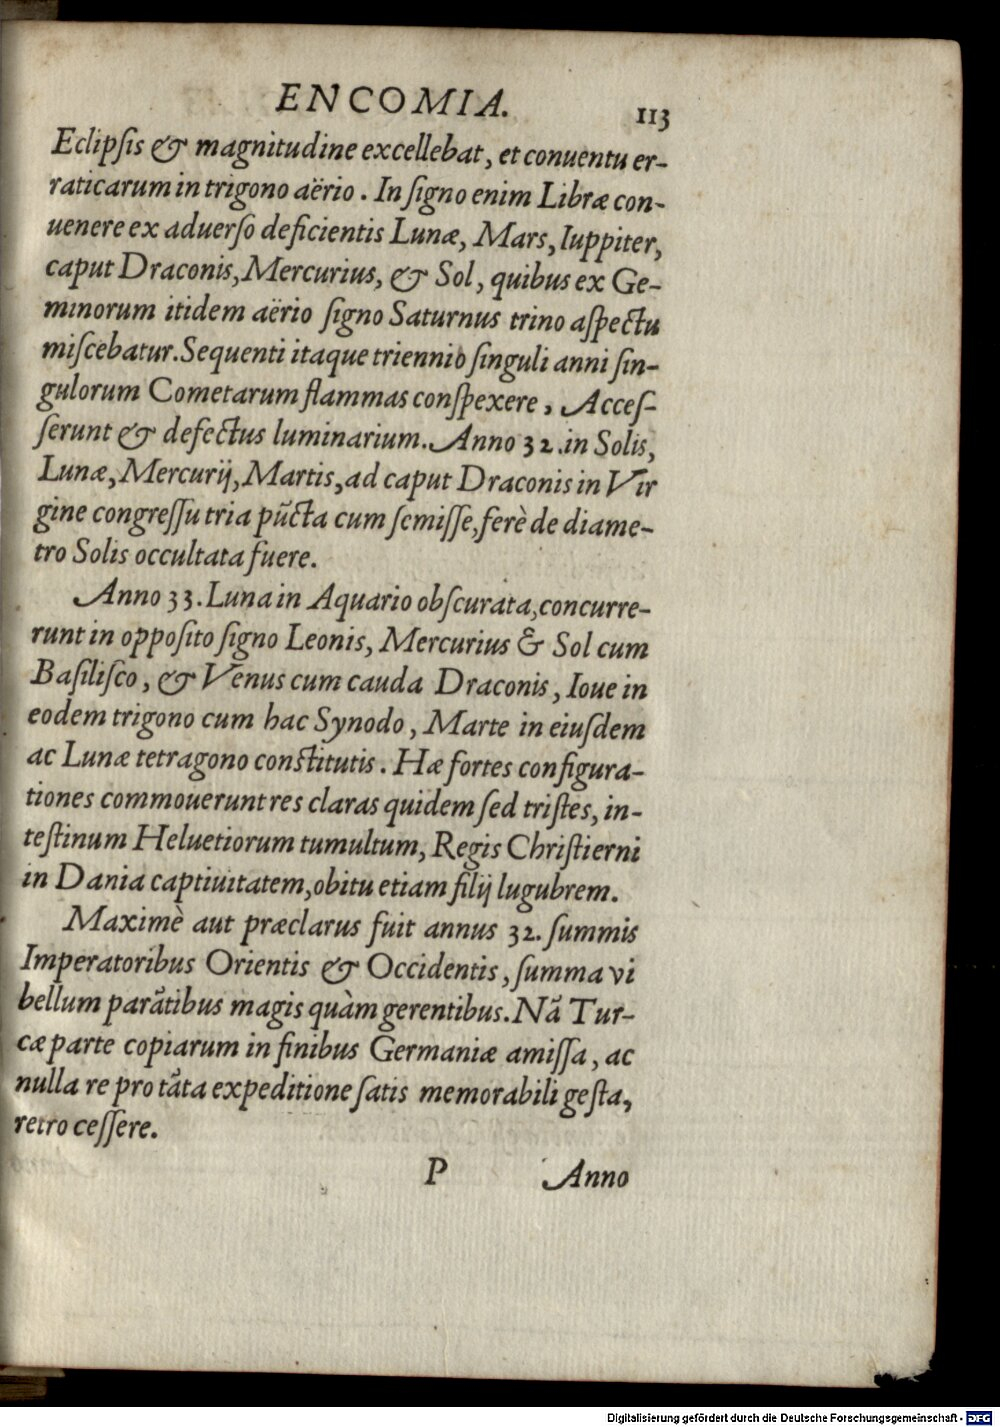 ENCOMIA. 113
Eclipſis & magnitudine excellebat, et conuentu er-
raticarum in trigono aërio. In ſigno enim Libræ con-
uenere ex aduerſo deficientis Lunæ, Mars, Iuppiter,
caput Draconis, Mercurius, & Sol, quibus ex Ge-
minorum itidem aërio ſigno Saturnus trino aſpectu
miſcebatur. Sequenti itaque triennio ſinguli anni ſin-
gulorum Cometarum flammas conſpexere, Acceſ-
ſerunt & defectus luminarium. Anno 32. in Solis,
Lunæ, Mercurij, Martis, ad caput Draconis in Vir
gine congreſſu tria pūcta cum ſemiſſe, ferè de diame-
tro Solis occultata fuere.
Anno 33. Luna in Aquario obſcurata, concurre-
runt in oppoſito ſigno Leonis, Mercurius & Sol cum
Baſiliſco, & Venus cum cauda Draconis, Ioue in
eodem trigono cum hac Synodo, Marte in eiuſdem
ac Lunæ tetragono conſtitutis. Hæ fortes configura-
tiones commouerunt res claras quidem ſed triſtes, in-
teſtinum Heluetiorum tumultum, Regis Chriſtierni
in Dania captiuitatem, obitu etiam filij lugubrem.
Maximè aut præclarus fuit annus 32. ſummis
Imperatoribus Orientis & Occidentis, ſumma vi
bellum parātibus magis quàm gerentibus. Nā Tur-
cæ parte copiarum in finibus Germaniæ amiſſa, ac
nulla re pro tāta expeditione ſatis memorabili geſta,
retro ceſſere.
P Anno
Digitalisierung gefördert durch die Deutsche Forschungsgemeinschaft - DFG